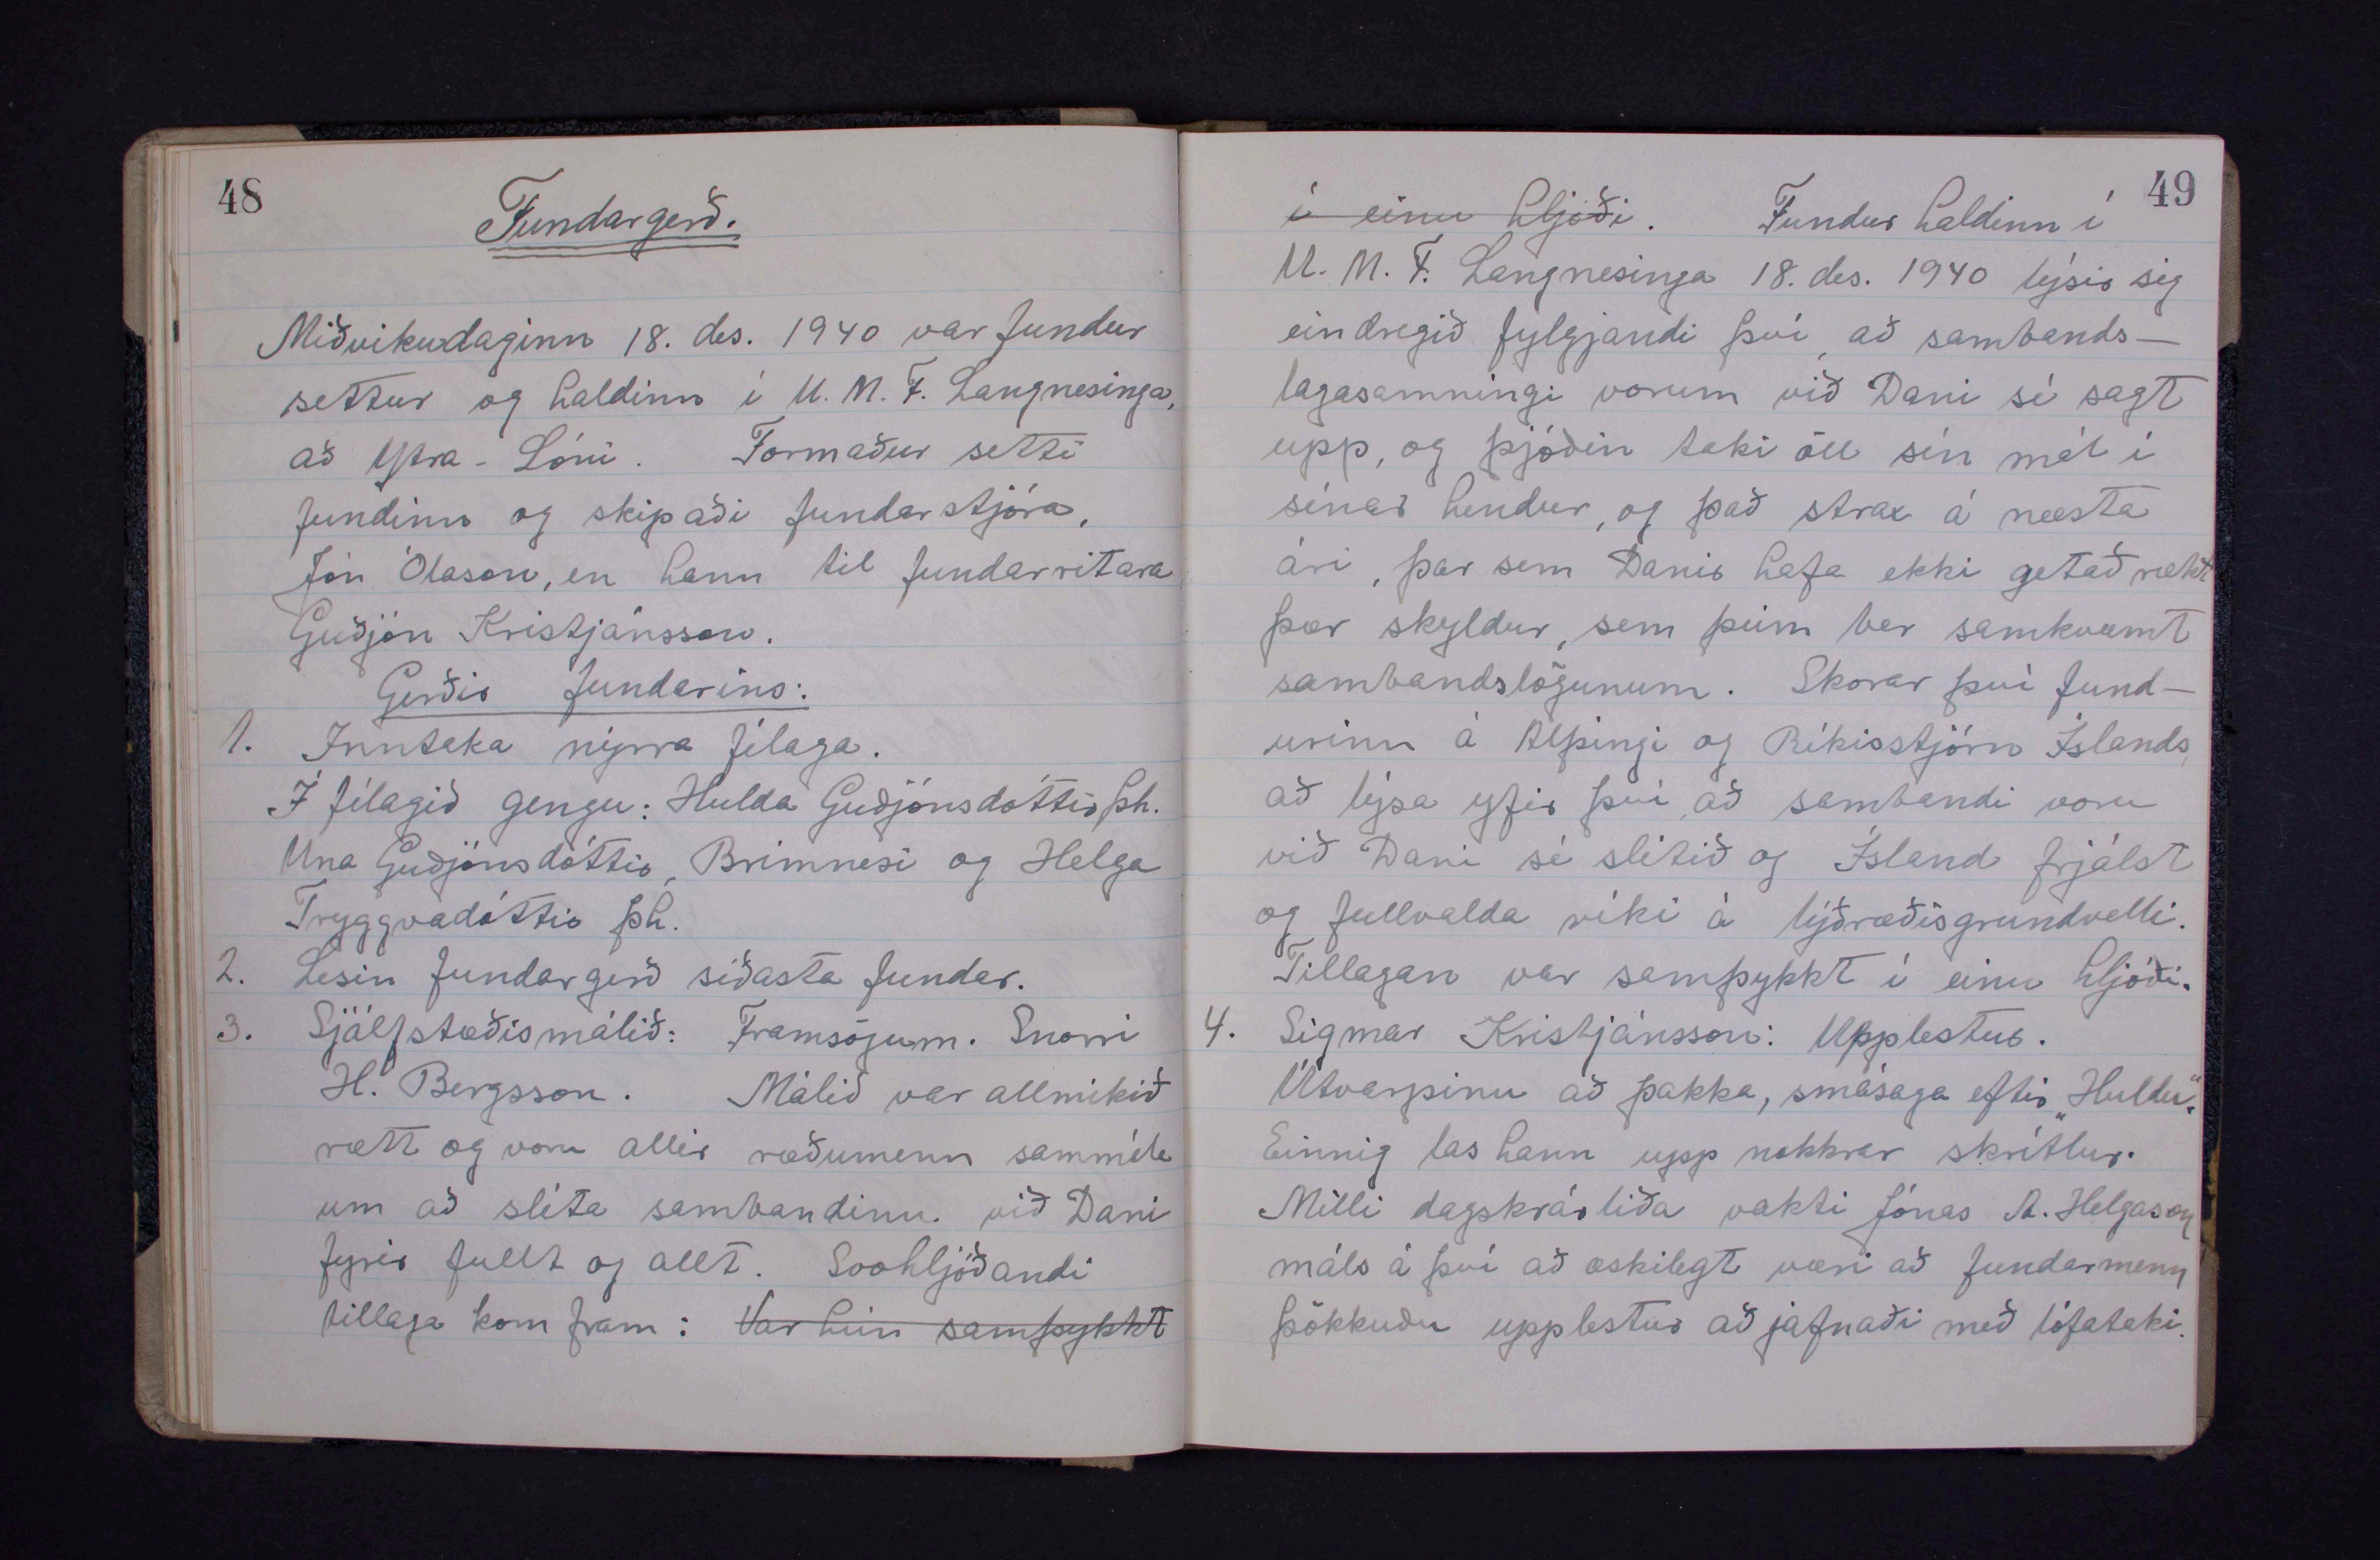 48
Fundargerð.
Miðvikudaginn 18. des. 1940 var fundur
settur og haldinn í U. M. F. Langnesinga,
að Ytra-Lóni. Formaður setti
fundinn og skipaði fundarstjóra,
Jón Ólason, en hann til fundarritara
Guðjón Kristjánsson.
Gerðir fundarins:
1. Inntaka nýrra félaga.
Í félagið gengu: Hulda Guðjónsdóttir Þh.
Una Guðjónsdóttir, Brimnesi og Helga
Tryggvadóttir Þh.
2. Lesin fundargerð síðasta fundar.
3. Sjálfstæðismálið: Framsögum. Snorri
H. Bergsson. Málið var allmikið
rætt og voru allir ræðumenn sammála
um að slíta sambandinu við Dani
fyrir fullt og allt. Svohljóðandi
tillaga kom fram: Var hún samþykkt
49
í einu hljóði. Fundur haldinn í
U. M. F. Langnesinga 18. des. 1940 lýsir sig
eindregið fylgjandi því, að sambands-
lagasamningi vorum við Dani sé sagt
upp, og þjóðin taki öll sín mál í
sínar hendur, og það strax á næsta
ári, þar sem Danir hafa ekki getað rækt
þær skyldur, sem þeim ber samkvæmt
sambandslögunum. Skorar því fund-
urinn á Alþingi og Ríkisstjórn Íslands,
að lýsa yfir því, að sambandi voru
við Dani sé slitið og Ísland frjálst
og fullvalda ríki á lýðræðisgrundvelli.
Tillagan var samþykkt í einu hljóði.
4. Sigmar Kristjánsson: Upplestur.
Útvarpinu að þakka, smásaga eftir „Huldu“.
Einnig las hann upp nokkrar skrítlur.
Milli dagskrárliða vakti Jónas A. Helgason
máls á því að æskilegt væri að fundarmenn
þökkuðu upplestur að jafnaði með lófataki.